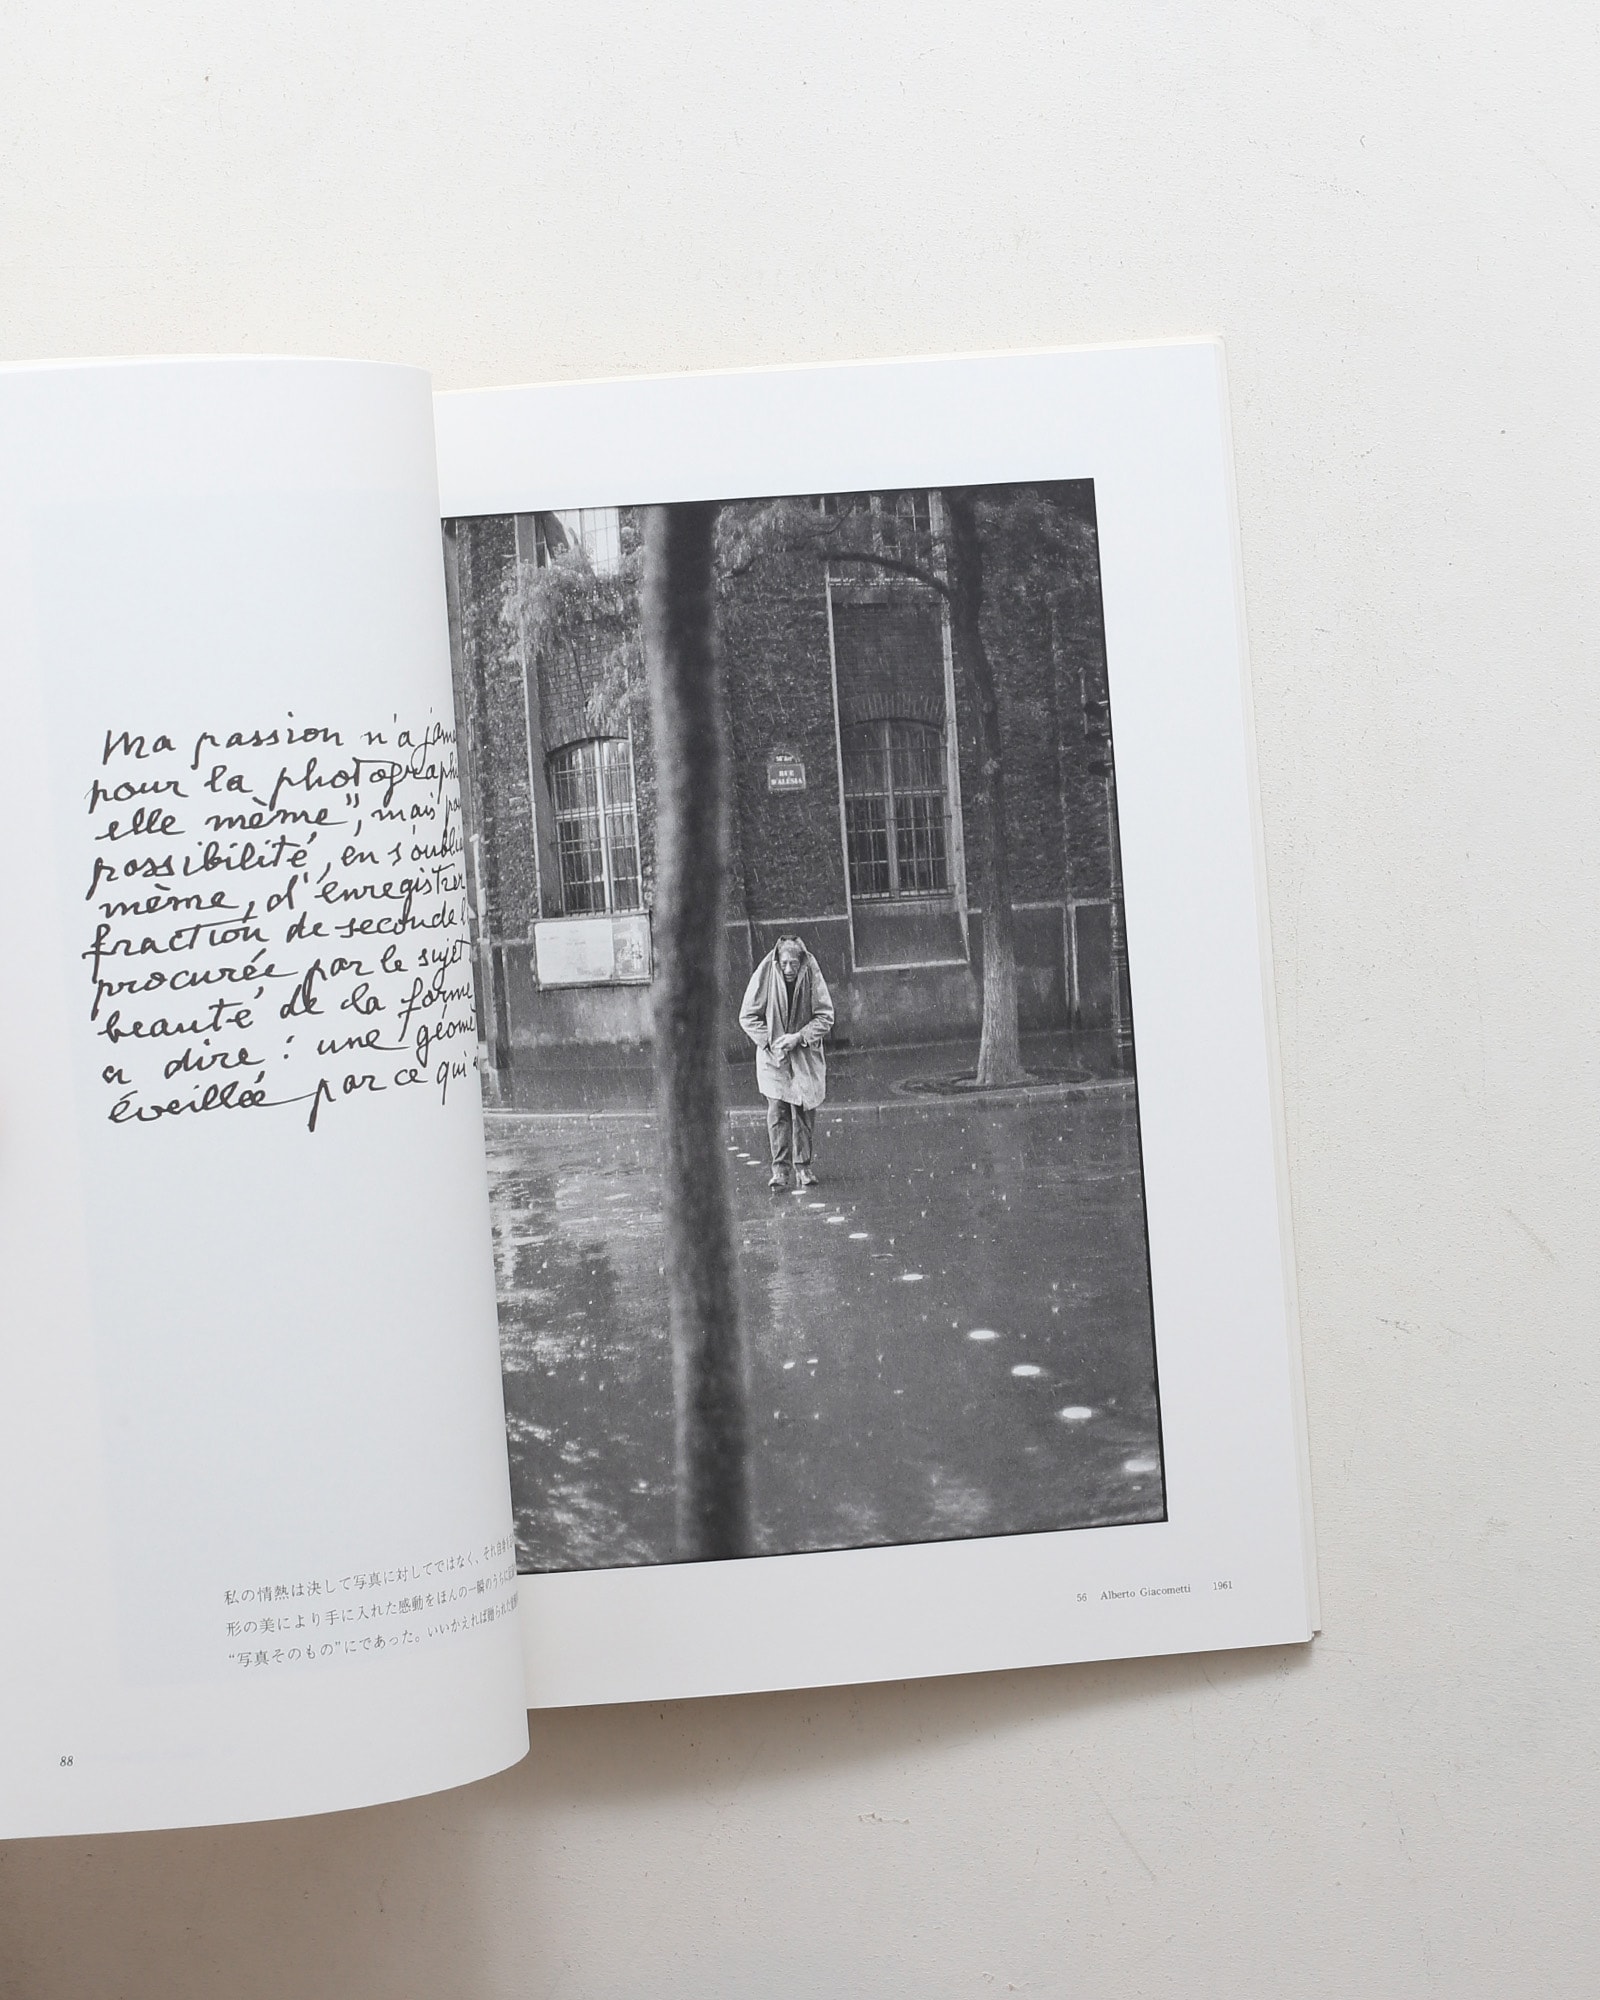 Ma passion n'a
pour la
elle même", mais
possibilité, en
même, d'enregistrer
fraction de seconde
procurée par le sujet
beauté de la forme
a dire : une
éveillée par ce qui
私の情熱は決して写真に対してではなく、それ自身
形の美により手に入れた感動をほんの一瞬のうちに
“写真そのもの”にであった。いいかえれば贈られた
88
RUE
D'ALÉSIA
56 Alberto Giacometti 1961